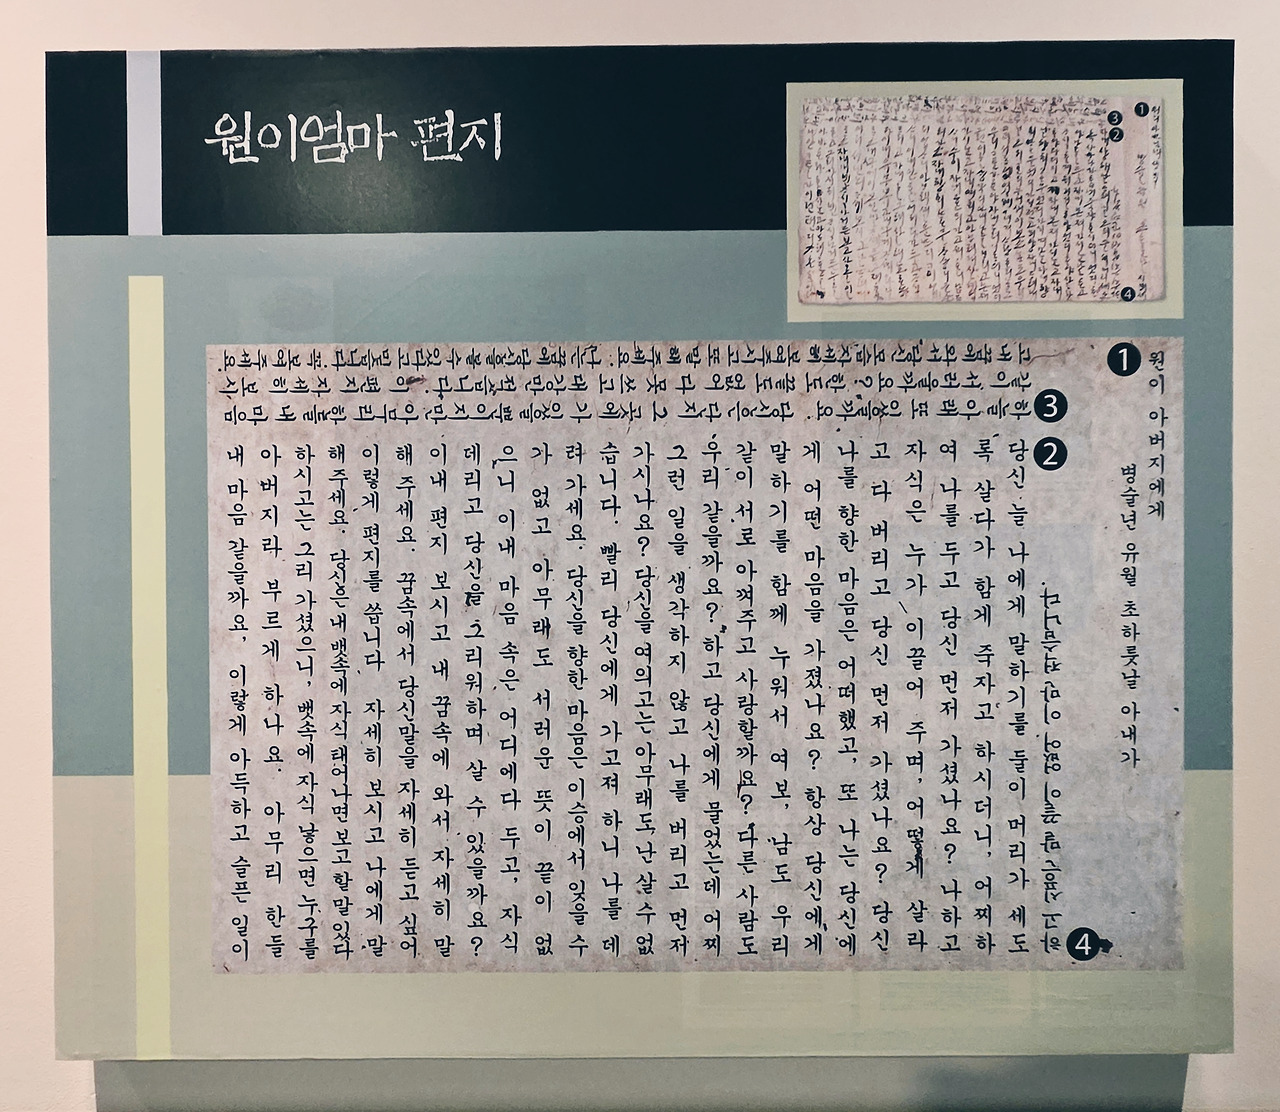 원이엄마 편지
❶ 원이 아버지에게
병술년 유월 초하룻날 아내가
❷ 당신 늘 나에게 말하기를 둘이 머리가 세도
록 살다가 함께 죽자고 하시더니, 어찌하
여 나를 두고 당신 먼저 가셨나요? 나하고
자식은 누가 이끌어 주며, 어떻게 살라
고 다 버리고 당신 먼저 가셨나요? 당신
나를 향한 마음은 어떠했고, 또 나는 당신에
게 어떤 마음을 가졌나요? 항상 당신에게
말하기를 함께 누워서 여보, 남도 우리
같이 서로 아껴주고 사랑할까요? 다른 사람도
우리 같을까요? 하고 당신에게 물었는데 어찌
그런 일을 생각하지 않고 나를 버리고 먼저
가시나요? 당신을 여의고는 아무래도 난 살 수 없
습니다. 빨리 당신에게 가고져 하니 나를 데
려가세요. 당신을 향한 마음은 이승에서 잊을 수
가 없고 아무래도 서러운 뜻이 끝이 없
으니 이내 마음 속은 어디에다 두고, 자식
데리고 당신을 그리워하며 살 수 있을까요?
이내 편지 보시고 내 꿈속에 와서 자세히 말
해 주세요. 꿈속에서 당신말을 자세히 듣고 싶어
이렇게 편지를 씁니다 자세히 보시고 나에게 말
해주세요. 당신은 내 뱃속에 자식 태어나면 보고 할 말 있다
하시고는 그리 가셨으니, 뱃속에 자식 낳으면 누구를
아버지라 부르게 하나요. 아무리 한들
내 마음 같을까요, 이렇게 아득하고 슬픈 일이
❸ 하늘 아래 또 있을까요. 당신은 단지 그 곳에 가 있을 뿐이지만 아무리 한들 내 마음
같이 서러울까요? 한도 끝도 없어 다 못 쓰고 대강만 적습니다. 이 편지 자세히 보시
고 내 꿈에 와서 당신 모습 자세히 보여주시고 또 말해 주세요. 나는 꿈에 당신을 볼 수 있다고 믿습니다. 꼭 보여 주세요.
❹ 하고 싶은 말 끝이 없어 이만 적습니다.